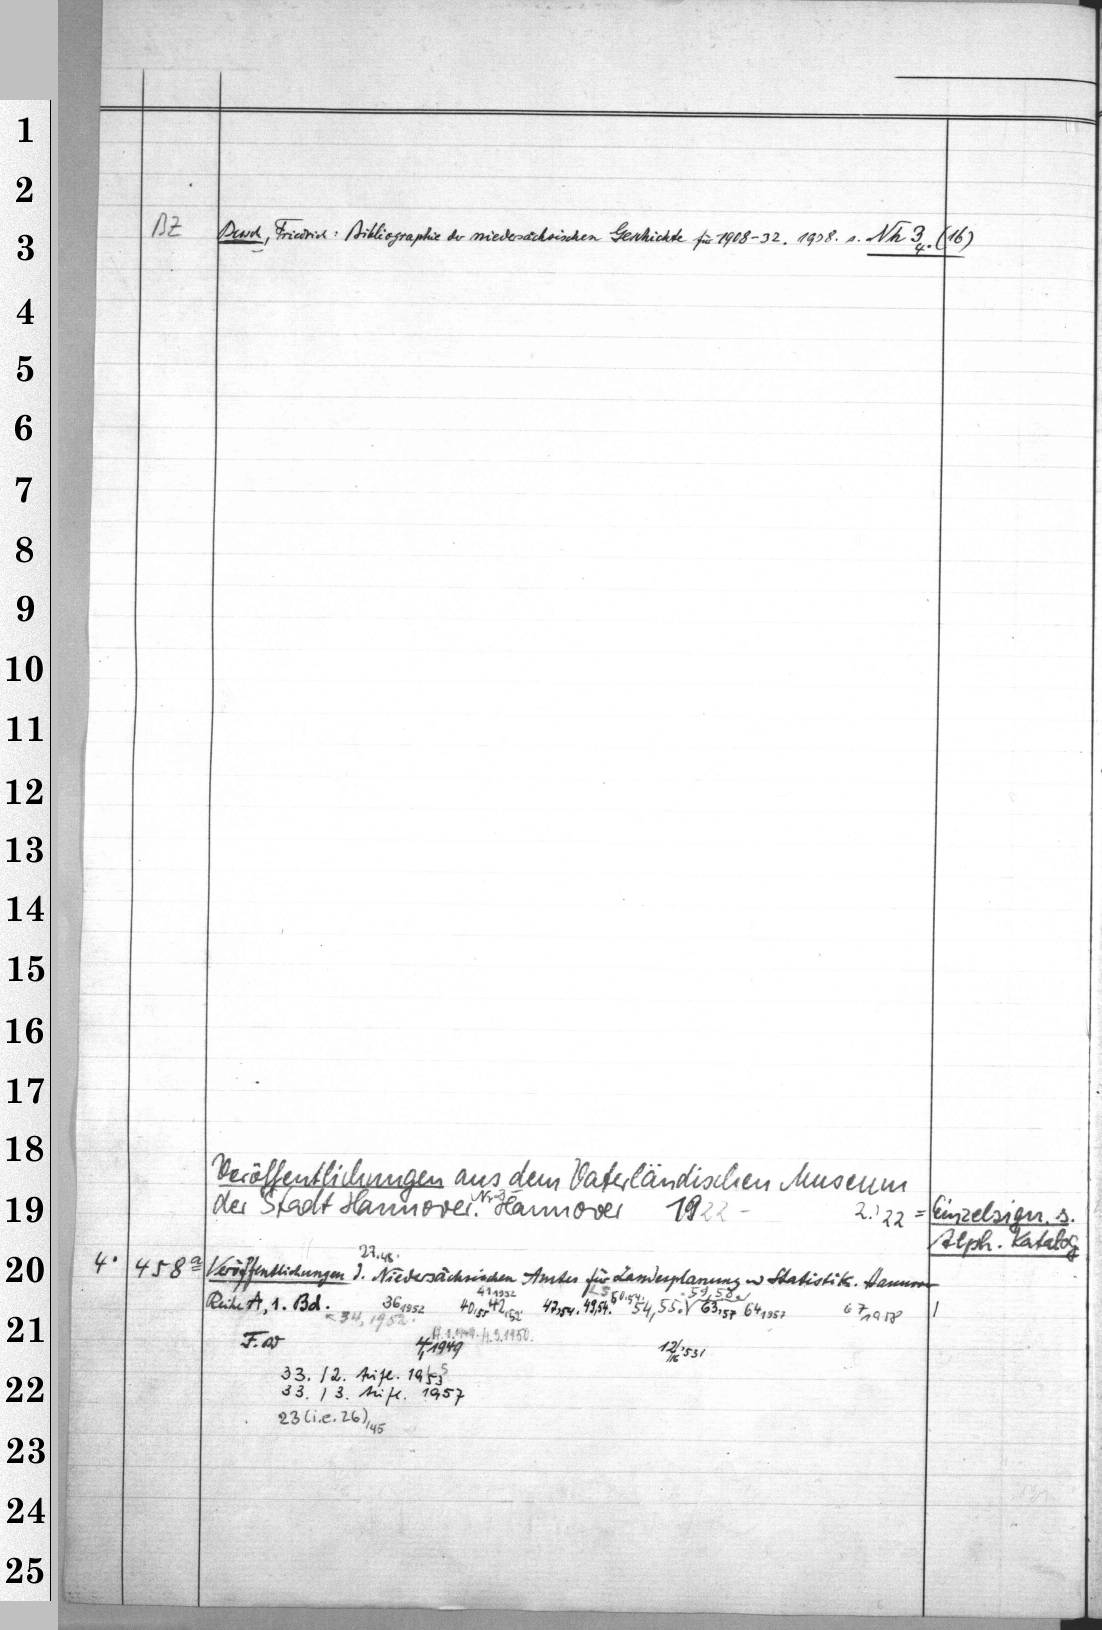 1
2
3
4
5
6
7
8
9
10
11
12
13
14
15
16
17
18
19
20
21
22
23
24
25
BZ Busch, Friedrich: Bibliographie der niedersächsischen Geschichte für 1908-32. 1938. s. Nh 3 4. (16)
Veröffentlichungen aus dem Vaterländischen Museum
der Stadt Hannover. Nr 2 Hannover 1922 - 2.) 22 = Einzelsign. s.
Alph. Katalog
27.48.
4° 458 a Veröffentlichungen d. Niedersächsischen Amtes für Landesplanung u Statistik. Hannover
41 1952 50.54. 59,58.
Reihe A, 1. Bd. 36 1952 40,55 42,52 47,54. 49,54. 54,55. 63,57 64 1957 67 1958 1
34, 1952.
F. W 4, 1949 12/16 '53/
33. / 2. Aufl. 1953
33. / 3. Aufl. 1957
23 (i.e. 26) /45